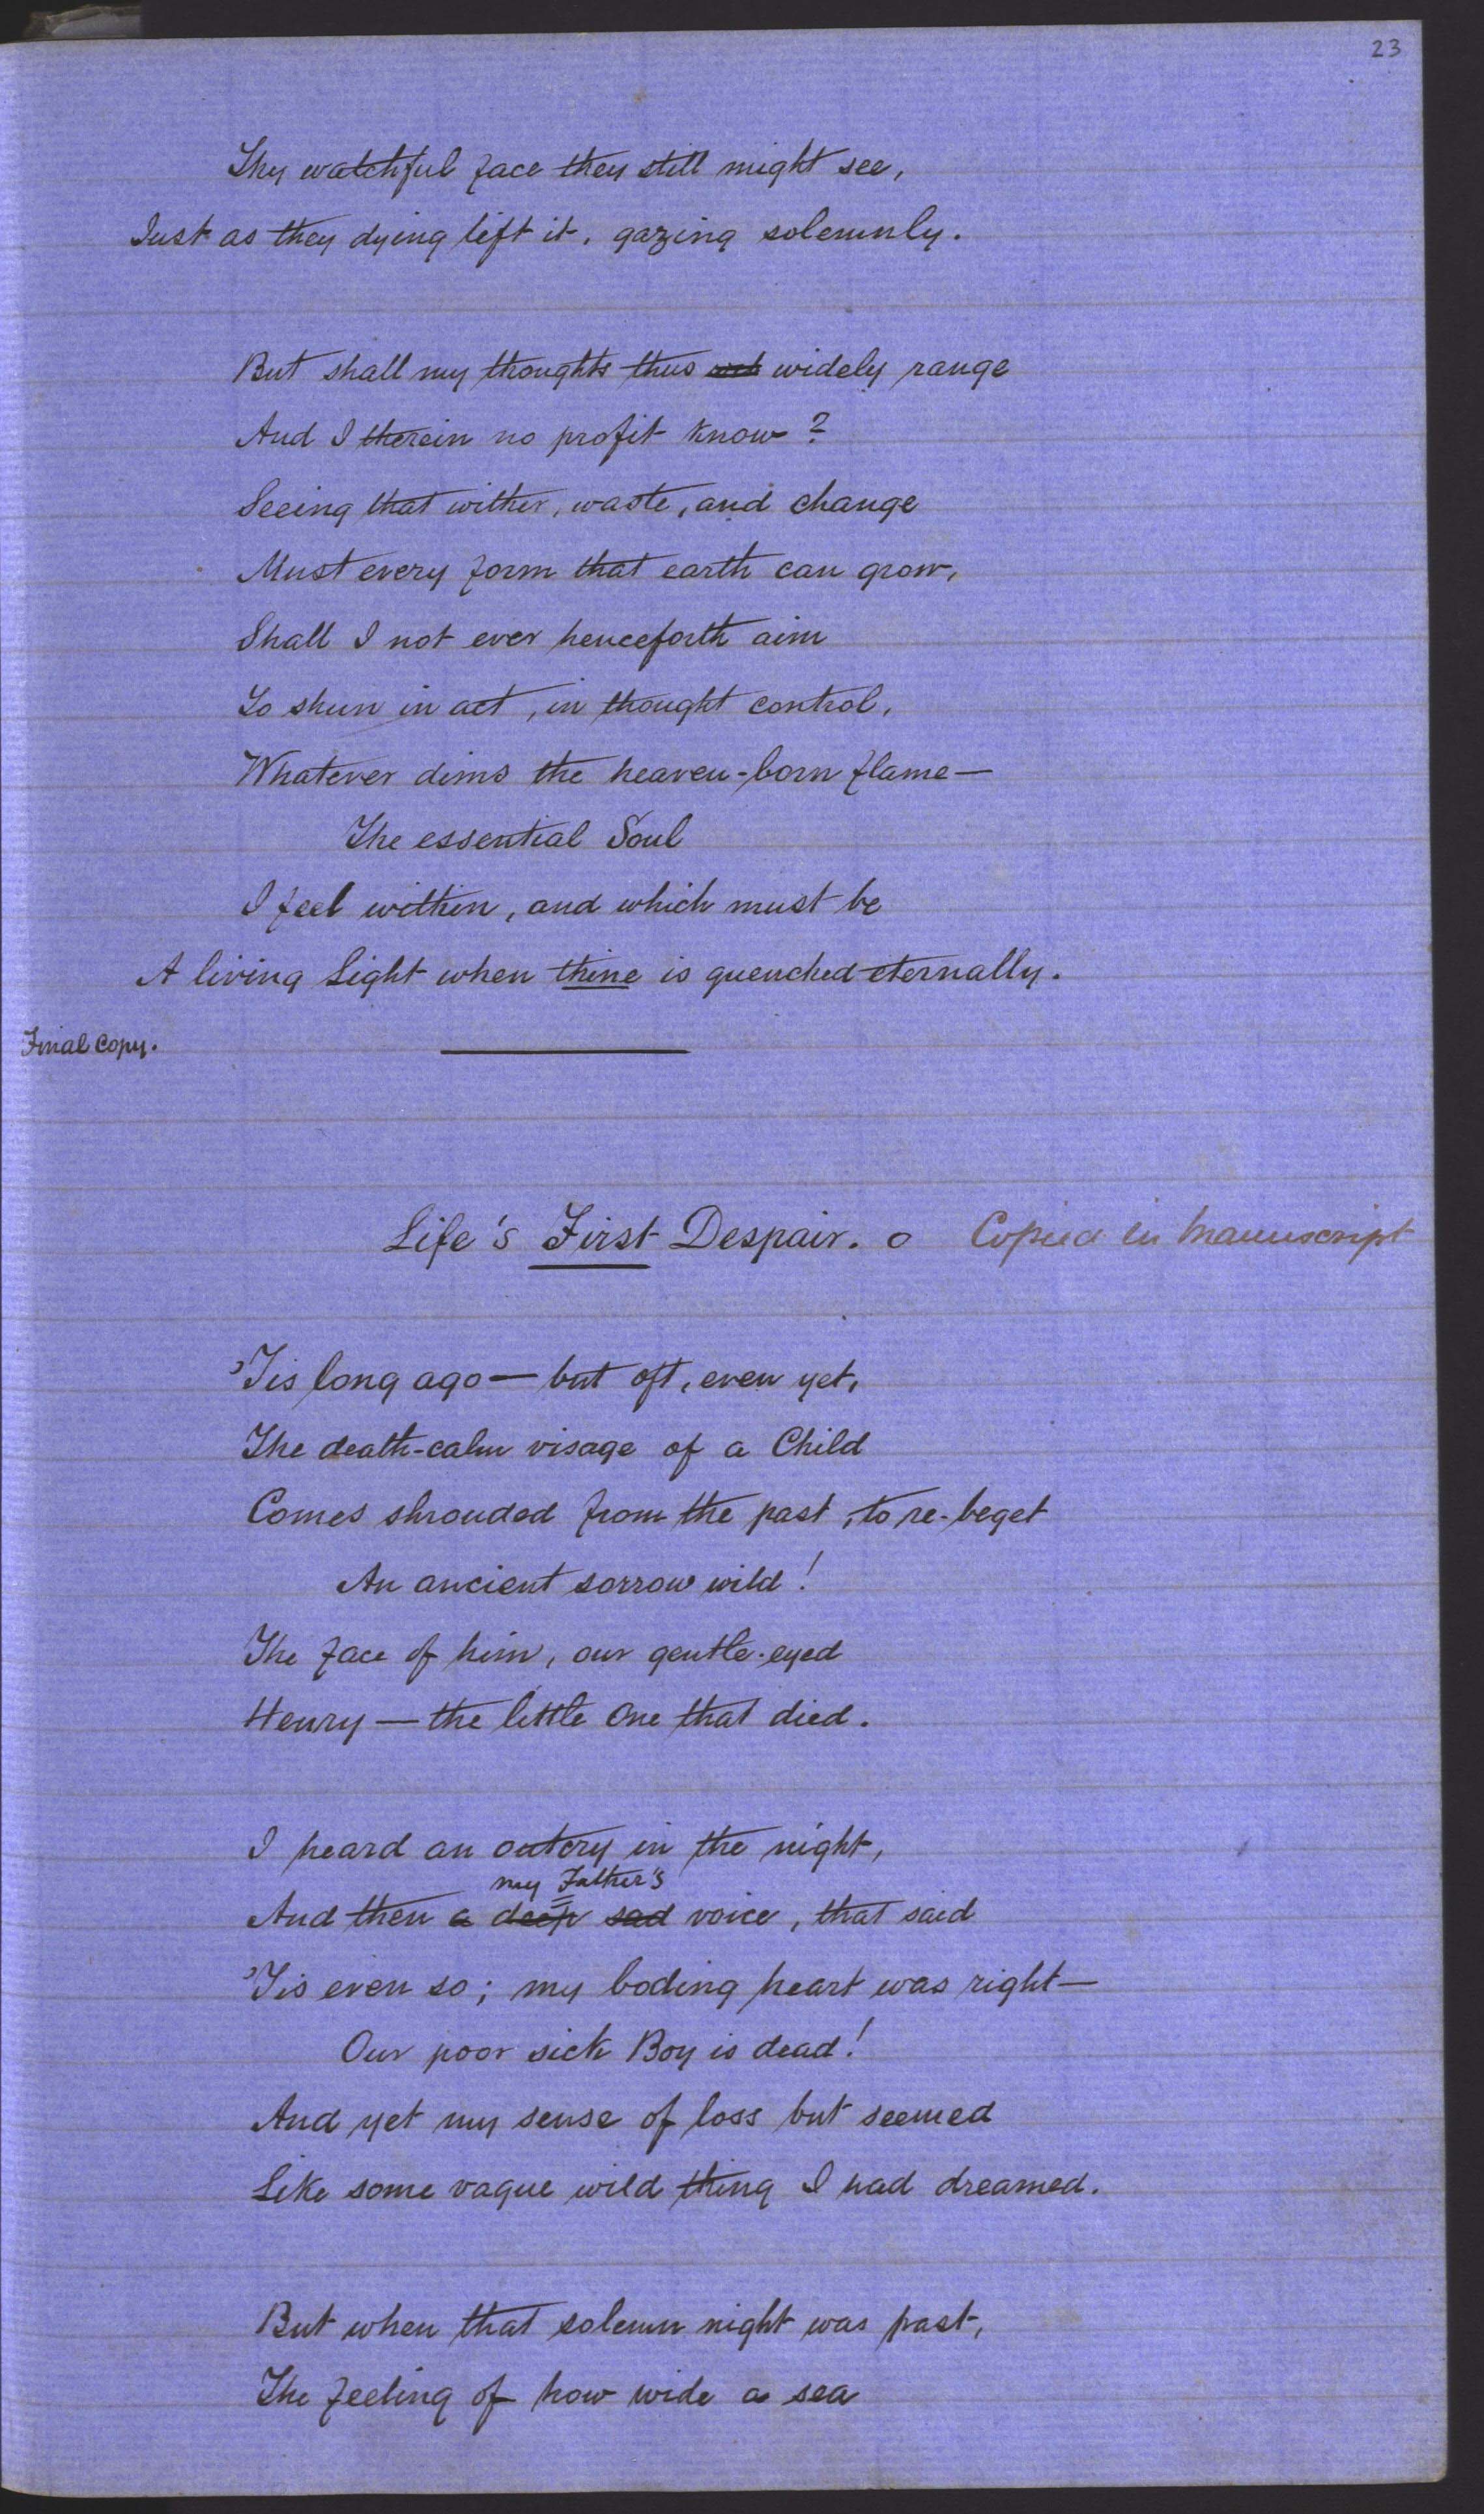 23
Thy watchful face they still might see,
Just as they dying left it, gazing solemnly.
But shall my thoughts thus widely range
And I therein no profit know?
Seeing that wither, waste, and change
Must every form that earth can grow,
Shall I not ever henceforth aim
To shun in act, in thought control,
Whatever dims the heaven-born flame—
The essential Soul
I feel within, and which must be
A living Light when thine is quenched eternally.
Final Copy.
Life's First Despair. o Copied in Manuscript
'Tis long ago— but oft, even yet,
The death-calm visage of a Child
Comes shrouded from the past, to re-beget
An ancient sorrow wild!
The face of him, our gentle-eyed
Henry— the little One that died.
I heard an outcry in the night,
my Father's
And then a deep sad voice, that said
'Tis even so; my boding heart was right—
Our poor sick Boy is dead!
And yet my sense of loss but seemed
Like some vague wild thing I had dreamed.
But when that solemn night was past,
The feeling of how wide a sea